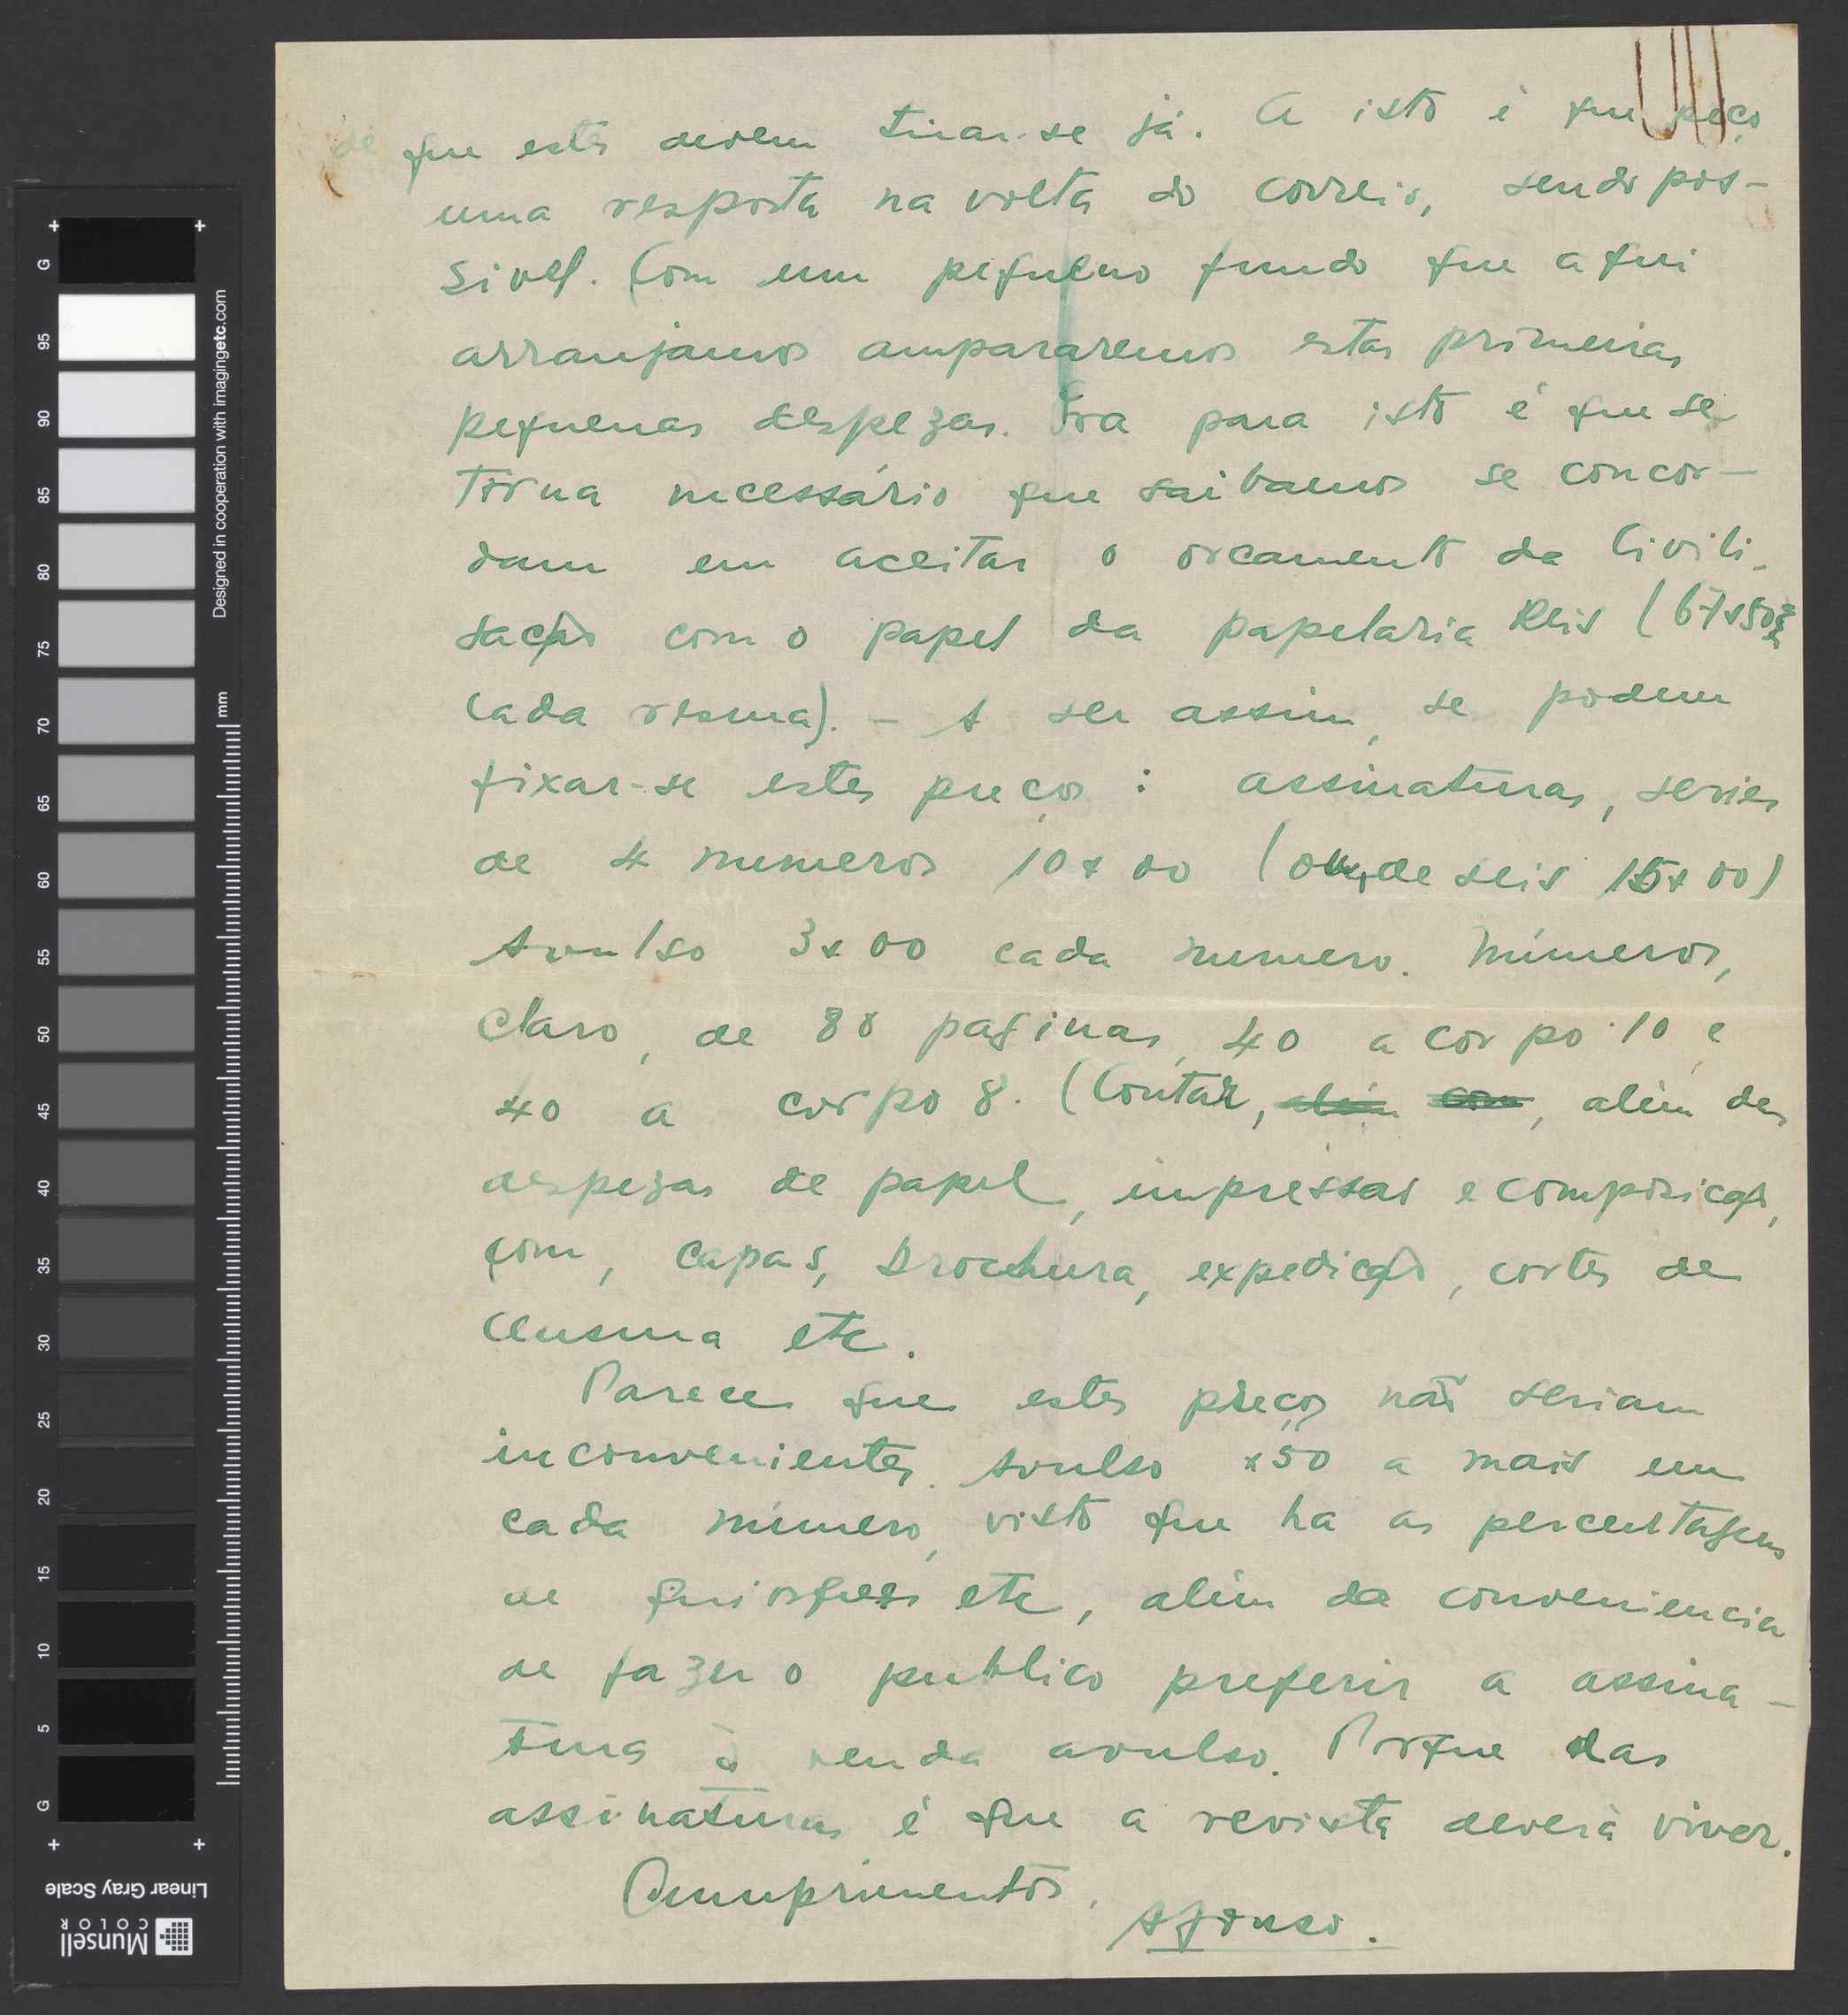 de que estes devem tirar-se já. A isto é que peço
uma resposta na volta do correio, sendo pos-
sivel. Com um pequeno fundo que aqui
arranjamos ampararemos estas primeiras
pequenas despezas. Ora para isto é que se
torna necessário que saibamos se concor-
dam em aceitar o orcamento da Civili-
sação com o papel da papelaria Reis (67$50
cada resma). - A ser assim, se podem
fixar-se estes preços : assinaturas, series
de 4 numeros 10$00 (ou, de seis 15$00)
Avulso 3$00 cada numero. Números,
claro, de 80 paginas, 40 a corpo 10 e
40 a corpo 8. (Contar, além com, além das
despezas de papel, impressão e composição,
com, capas, brochura, expedição, cortes de
censura etc.
Parece que estes preços não seriam
inconvenientes. Avulso $50 a mais em
cada número, visto que ha as percentagens
de quiosques etc, além da conveniencia
de fazer o publico preferir a assina-
tura à venda avulso. Porque das
assinaturas é que a revista deverá viver.
Cumprimentos.
Afonso.
G 95 90 85 80 75 70 65 60 55 50 45 40 35 30 25 20 15 10 5 G
Designed in cooperation with imagingetc.com
mm
Linear Gray Scale
Munsell
COLOR